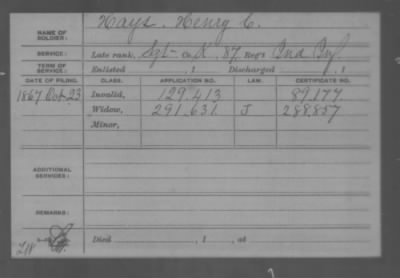 NAME OF SOLDIER: Hays, Henry C.
SERVICE: Late rank, Sgt- Co. K, 87, Reg't Ind. Inf.
TERM OF SERVICE: Enlisted , 1 Discharged , 1
DATE OF FILING. CLASS. APPLICATION NO. LAW. CERTIFICATE NO.
1867 Oct 23 Invalid, 129.413 89.177.
Widow, 291.631. J 288857
Minor,
ADDITIONAL SERVICES:
REMARKS:
Died , 1 , at